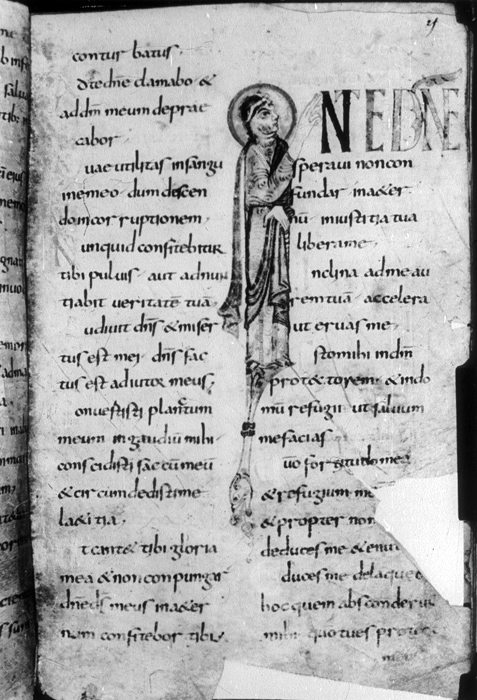 conturbatus
dtednē clamabo &
addm̄ meum deprae
cabor
uae utilitas insangu
inemeo dum discen
do incorruptionem
unquid confitebitur
tibi puluis aut adnun
tiabit ueritatē tuā
udiuit dn̄s & miser
tus est mei dn̄s fac
tus est adiutor meus
onuertisti planctum
meum ingaudiū mihi
conscidisti saccū meū
& circumdedisti me
l&itia
t cant& tibi gloria
mea & non conpungar
dnē ds̄ meus in a&er
num confitebor tibi
N TE DNE
speraui non con
fundar in a&er
nū in iustitia tua
libera me
nclina ad me au
rem tuā accelera
ut eruas me
sto mihi in dm̄
prot&torem & indo
mū refugii ut saluum
me facias
uō fortitudo mea
& refugium me
& propter nom
deduces me & enut
duces me de laqueo
hoc quem absconderun
mihi quo tu es protec